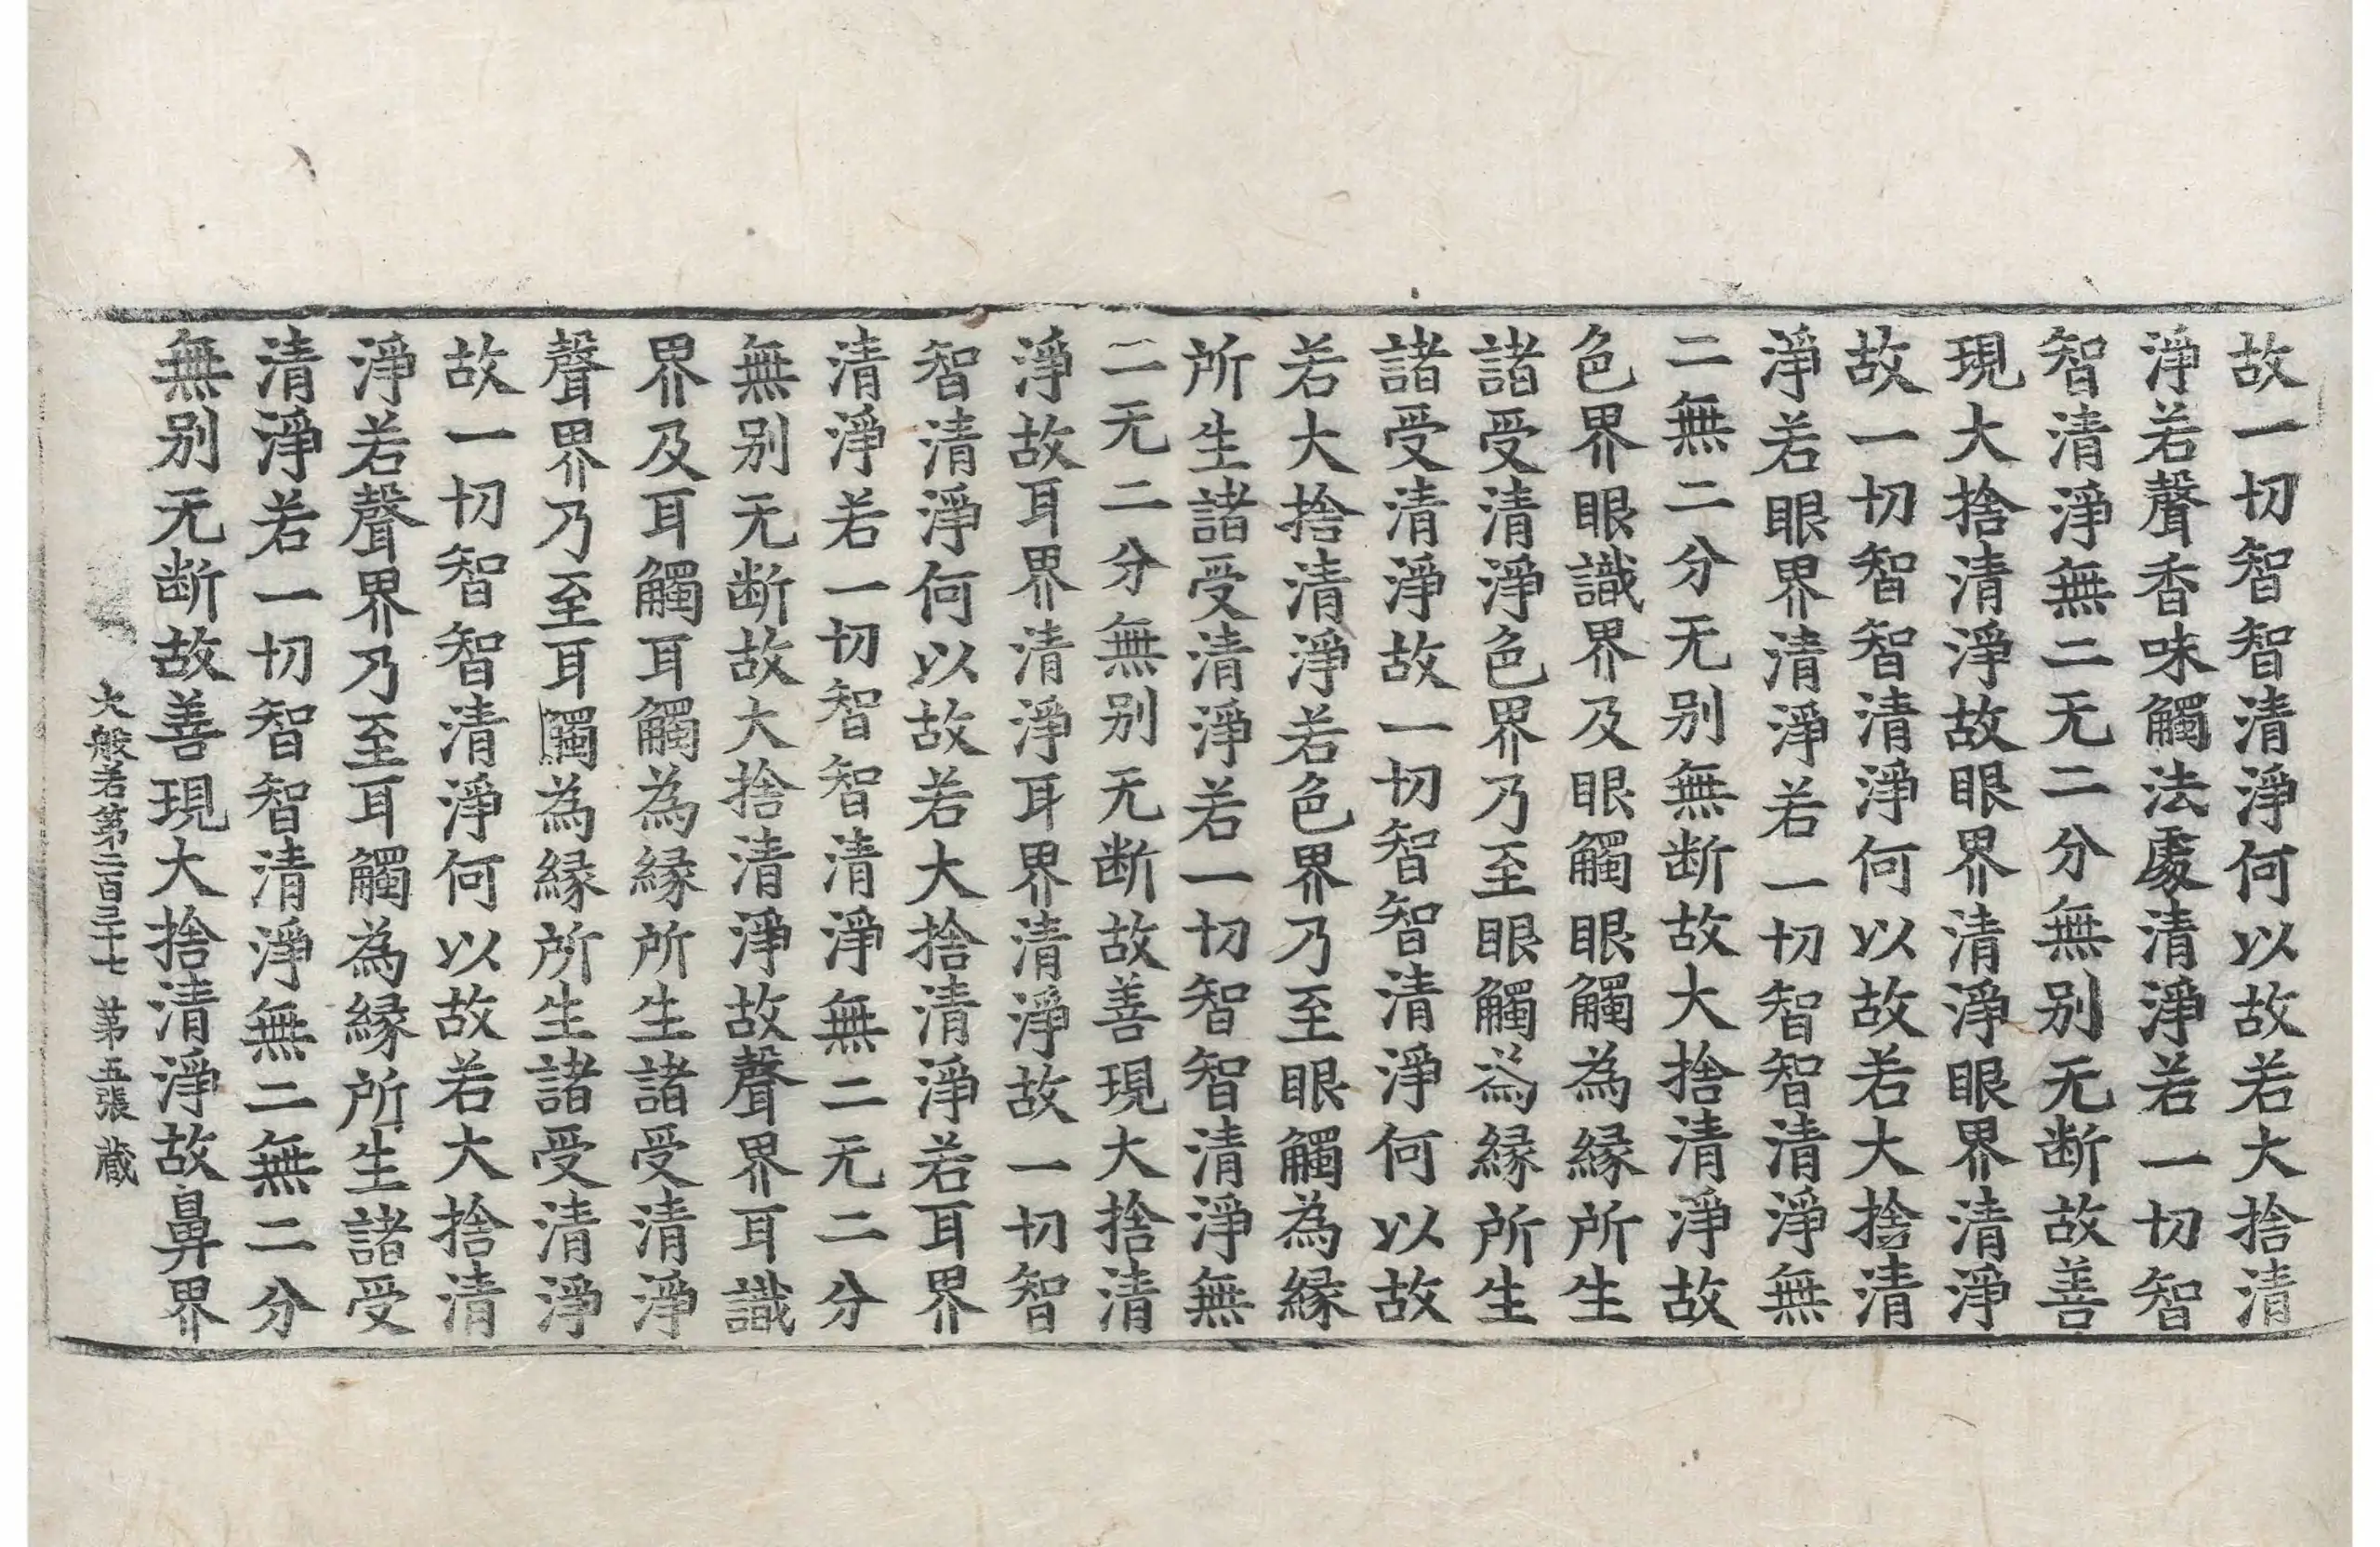 故一切智智清淨何以故若大捨清
淨若聲香味觸法處清淨若一切智
智清淨無二无二分無别无断故善
現大捨清淨故眼界清淨眼界清淨
故一切智智清淨何以故若大捨清
淨若眼界清淨若一切智智清淨無
二無二分无别無断故大捨清淨故
色界眼識界及眼觸眼觸為縁所生
諸受清淨色界乃至眼觸為縁所生
諸受清淨故一切智智清淨何以故
若大捨清淨若色界乃至眼觸為縁
所生諸受清淨若一切智智清淨無
二无二分無别无断故善現大捨清
淨故耳界清淨耳界清淨故一切智
智清淨何以故若大捨清淨若耳界
清淨若一切智智清淨無二无二分
無别无断故大捨清淨故聲界耳識
界及耳觸耳觸為縁所生諸受清淨
聲界乃至耳觸為縁所生諸受清淨
故一切智智清淨何以故若大捨清
淨若聲界乃至耳觸為縁所生諸受
清淨若一切智智清淨無二無二分
無别无断故善現大捨清淨故鼻界
大般若第二百三十七 第五張 蔵